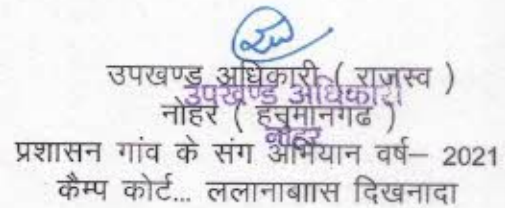 उपखण्ड अधिकारी ( राजस्व )
उपखण्ड अधिकारी
नोहर ( हनुमानगढ )
नोहर
प्रशासन गांव के संग अभियान वर्ष– 2021
कैम्प कोर्ट... ललानाबाास दिखनादा